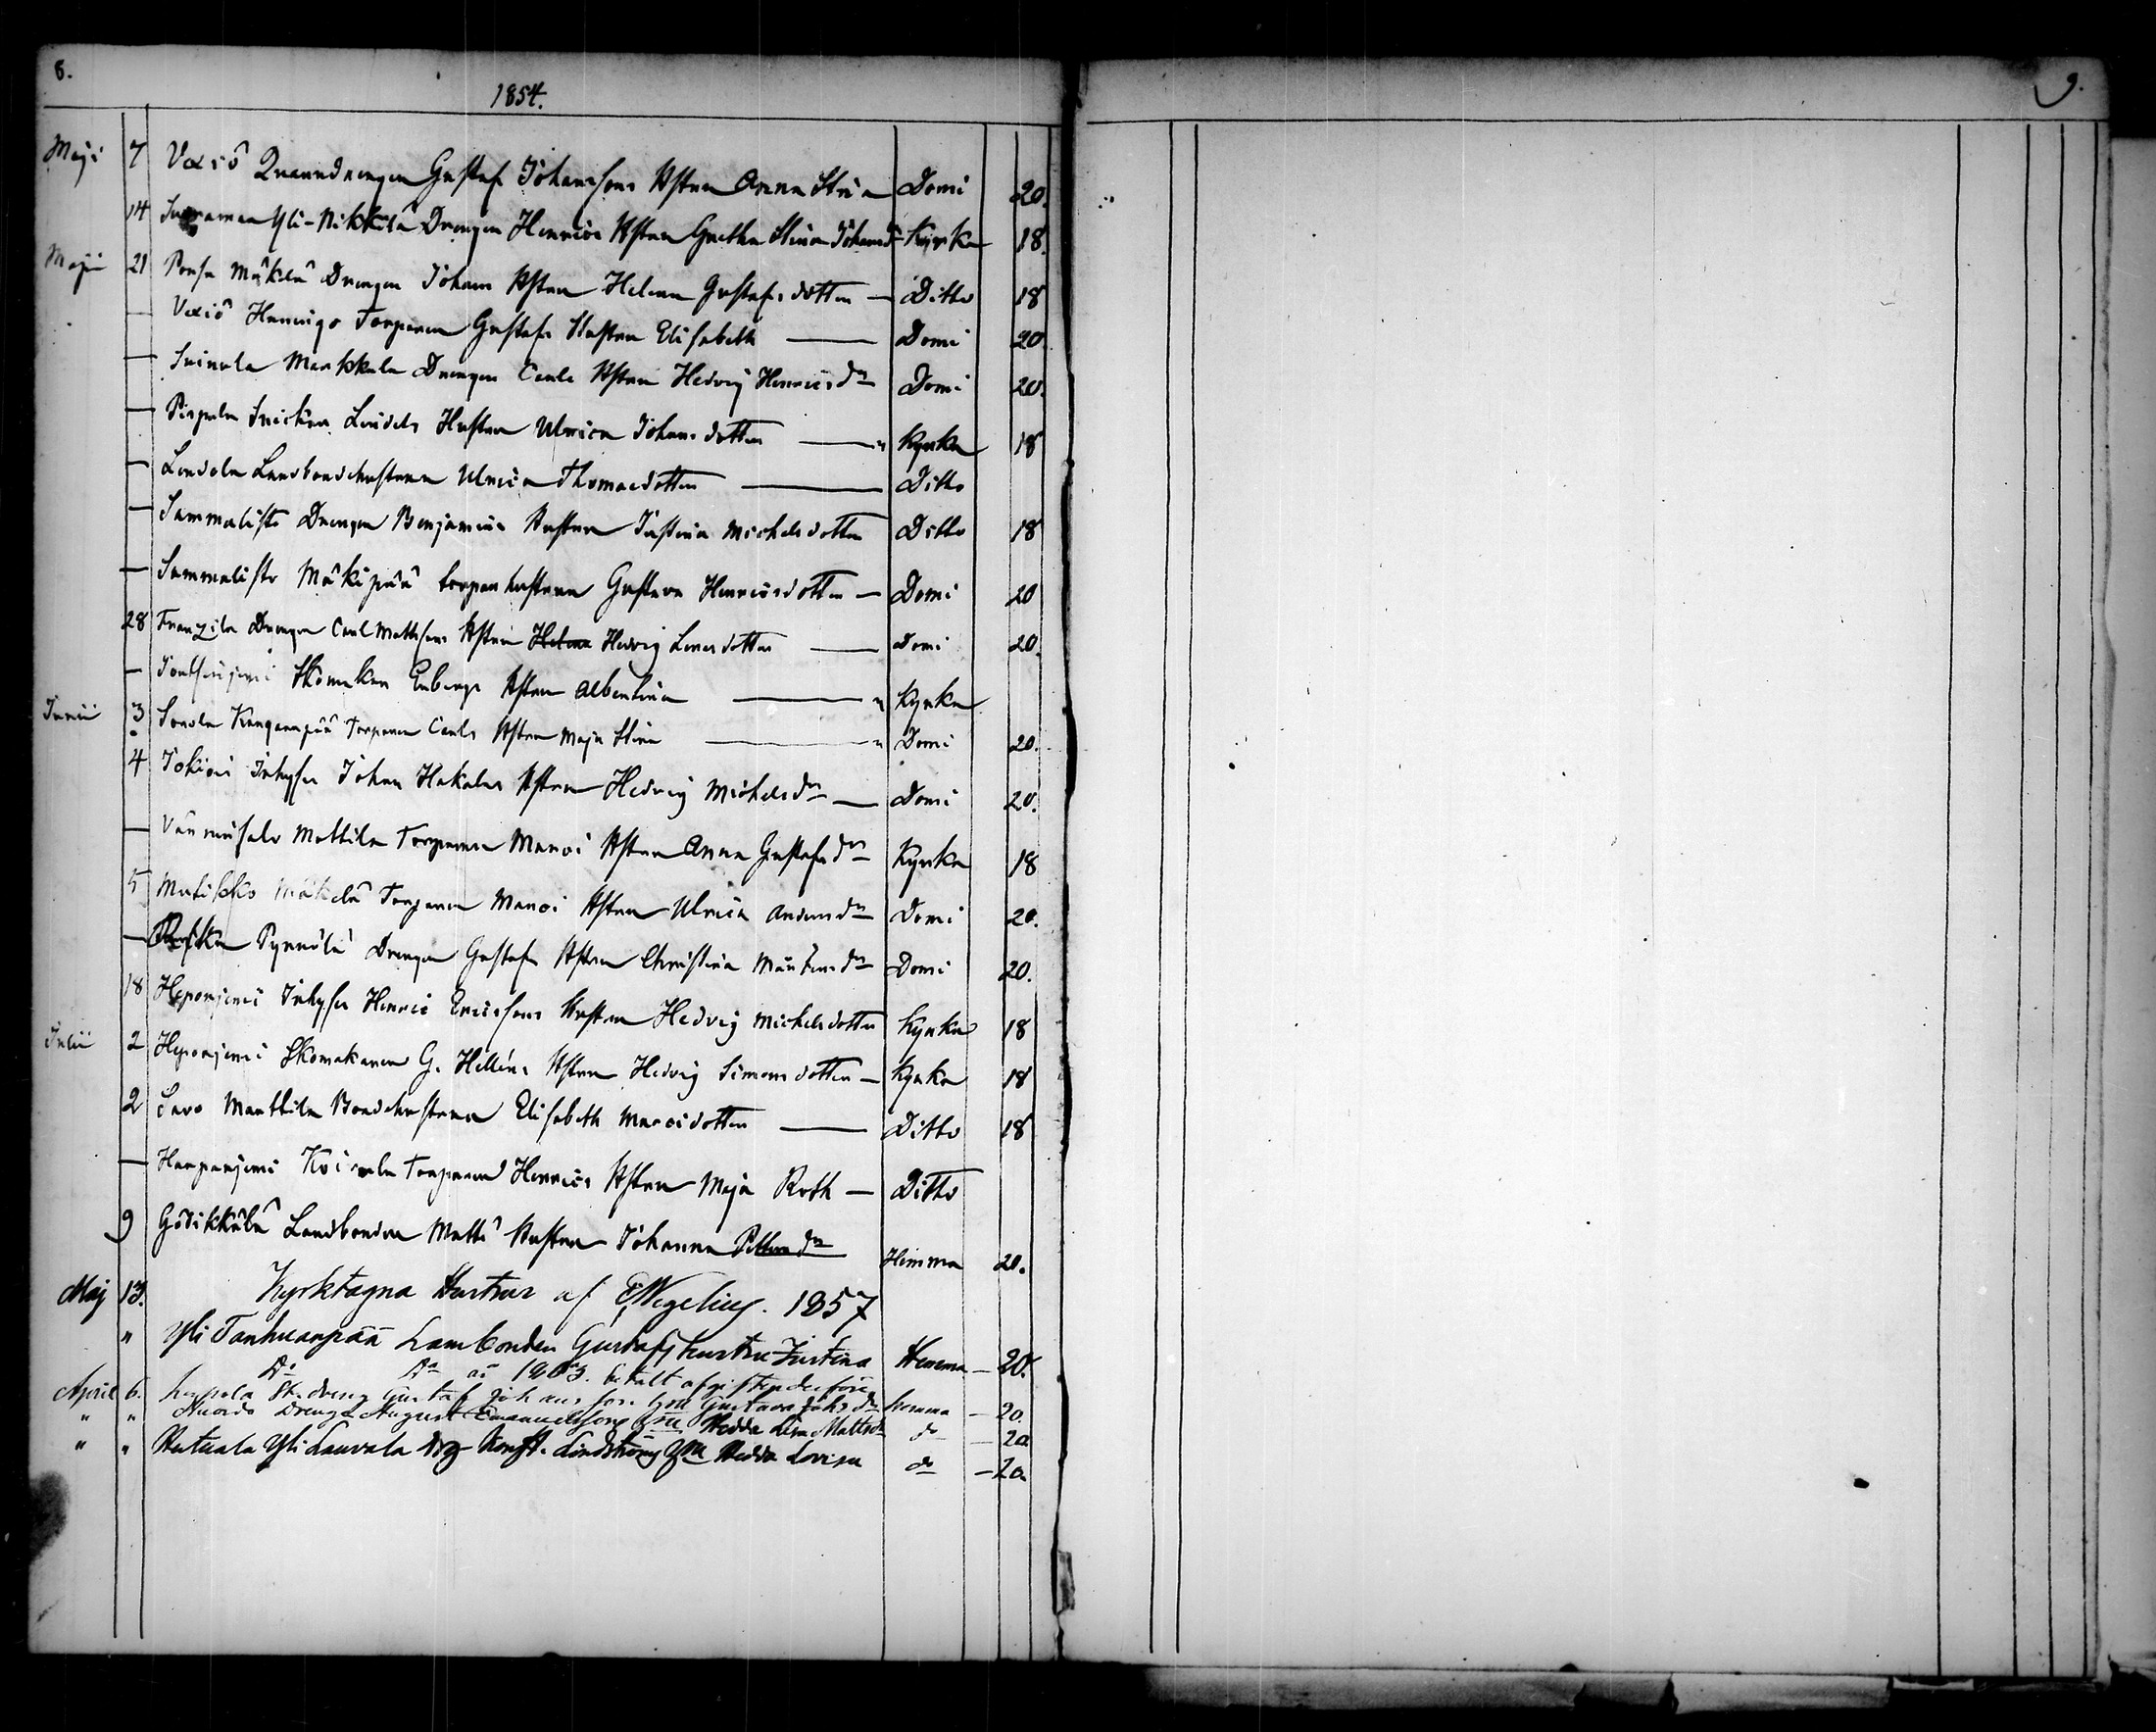 8.
1854.
9.
Maji 7 Vaxiö Quarndrengen Gustaf Johanssons Hstru Anna Stina Domi 20.
14 Yli-Nikkilä Drengen Henrics Hstru Gretha Stina Johansd. Kyrka 18.
Maji 21 Mäkilä Drengen Johans Hstru Helena Gustafsdotter — Ditto 18
— Vaxiö Hennigo Torparen Gustafs Hustru Elisabeth — Domi 20
— Suinula Markkula Drengen Carls Hstru Hedvig Henricsdr Domi 20.
— Pirpala Snickar Lindels Hustru Ulrica Johansdotter — Kyrka 18
— Landbondehustrun Ulrica Thomasdotter — Ditto
— Sammalisto Drengen Benjamins Hustru Justina Michelsdotter Ditto 18
— Sammalisto Mäkipää torparhustrun Gustava Henricsdotter — Domi 20
28 Franzila Drengen Carl Mattssons Hstru Helena Hedvig Larsdotter — Domi 20.
— Skomakar Enbergs Hstru Albertina — Kyrka
Junii 3 Kangaanpää Torparen Carls Hstru Maja Stina — Domi 20.
4 Jokiois Inhyses Johan Hakalas Hstru Hedvig Michelsdr — Domi 20.
— Mattila Torparen Marci Hstru Anna Gustafsdr Kyrka 18
5 Matisko Mäkelä Torparen Marci Hstru Ulrica Andersdr Domi 20.
— Pynnölä Drengen Gustafs Hstru Christina Mårtensdr Domi 20.
18 Haponjemi Inhyses Henric Ericssons Hustru Hedvig Michelsdotter Kyrka 18
Julii 2 Haponjemi Skomakaren G. Helléns Hstru Hedvig Simonsdotter — Kyrka 18
2 Savo Marttila Bondehustrun Elisabeth Marcidotter — Ditto 18
— Koivula Torparen Henrics Hstru Maja Ruth — Ditto
9 Gödikkälä Landbonden Matts Hustru Johanna Pettersdr Hemma 20.
Maj 13. Kyrktagna Hustrur af E. Wegelius. 1857
" Yli Tanhuanpää Lambonden Gustafs hustru Justina Hemma — 20.
Do Do betalt afgiften derföre
April 6. St. dreng Gustaf Johansson hru Gustava Johsdr hemma — 20.
" " Drenge August Emanuelssons hru Hedda Lisa Mattsdr do — 20
" " Hutuala Yli Lauvala drg Konst. Lindströms hru Hedda Lovisa do — 20